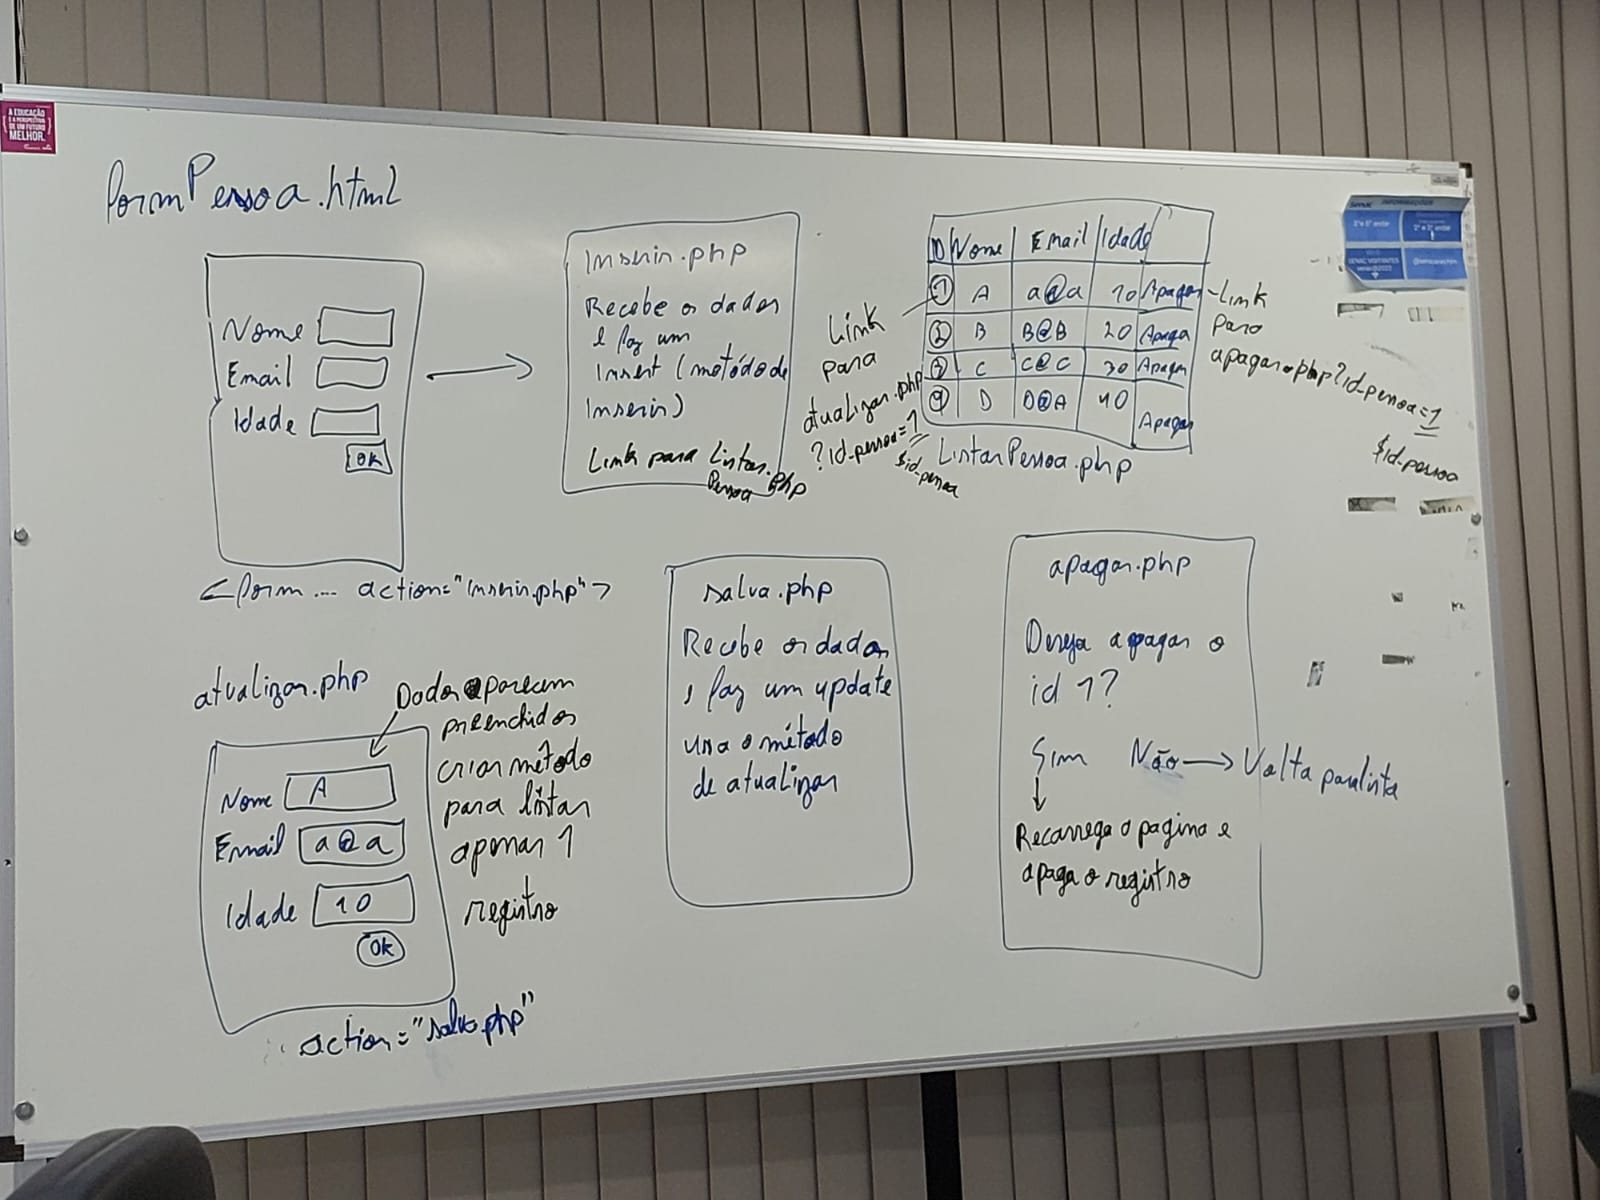 A EDUCAÇÃO
É A PERSPECTIVA
DE UM FUTURO
MELHOR.
formPessoa.html
Nome
Email
Idade
OK
<form .... action="inserir.php">
Inserir.php
Recebe os dados
e faz um
Insert (metódo de
Inserir)
Link para Listar
Pessoa.php
ID Nome Email Idade
1 A a@a 10 Apagar
2 B B@B 20 Apaga
3 C C@C 30 Apagar
4 D D@A 40 Apagar
ListarPessoa.php
Link
para
atualizar.php
?id_pessoa=1
$id_pessoa
Link
para
apagar.php?id_pessoa=1
$id_pessoa
atualizar.php
Dados aparecem
preenchidos
criar método
para listar
apenas 1
registro
Nome A
Email a@a
Idade 10
OK
action="salva.php"
salva.php
Recebe os dados
e faz um update
usa o método
de atualizar
apagar.php
Deseja apagar o
id 1?
Sim Não → Volta para lista
Recarrega a pagina e
apaga o registro
senac INFORMAÇÕES